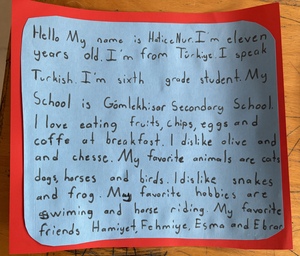 Hello My name is HaticeNur. I'm eleven
years old. I'm from Türkiye. I speak
Turkish. I'm sixth grade student. My
School is Gömlekhisar Secondary School.
I love eating fruits, chips, eggs and
coffe at breakfast. I dislike olive and
and chesse. My favorite animals are cats
dogs, horses and birds. I dislike snakes
and frog. My favorite hobbies are
swiming and horse riding. My favorite
friends Hamiyet, Fehmiye, Esma and Ebrar